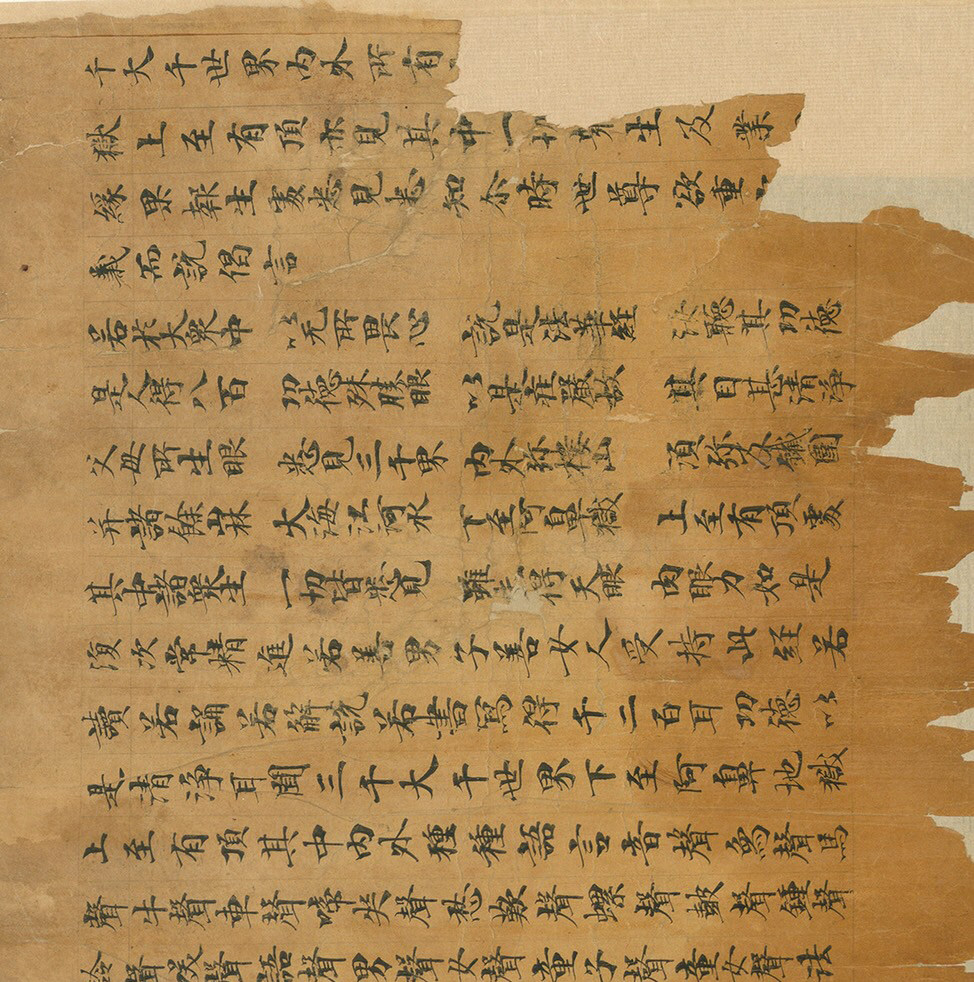 千大千世界内外所有
獄上至有頂亦見其中一切衆生及業
緣果報生處悉見悉知尒時世尊欲重
義而說偈言
若於大衆中 以无所畏心 說是法華經 汝聽其功德
是人得八百 功德殊勝眼 以是莊嚴故 其目甚清淨
父母所生眼 悉見三千界 内外弥樓山 須弥及鐵圍
并諸餘山林 大海江河水 下至阿鼻獄 上至有頂處
其中諸衆生 一切皆悉見 雖得天眼 肉眼力如是
復次常精進若善男子善女人受持此經若
讀若誦若解說若書寫得千二百耳功德以
是清淨耳聞三千大千世界下至阿鼻地獄
上至有頂其中内外種種語言音聲象聲馬
聲牛聲車聲啼哭聲愁歎聲螺聲鼓聲鍾聲
鈴聲笑聲語聲男聲女聲童子聲童女聲法